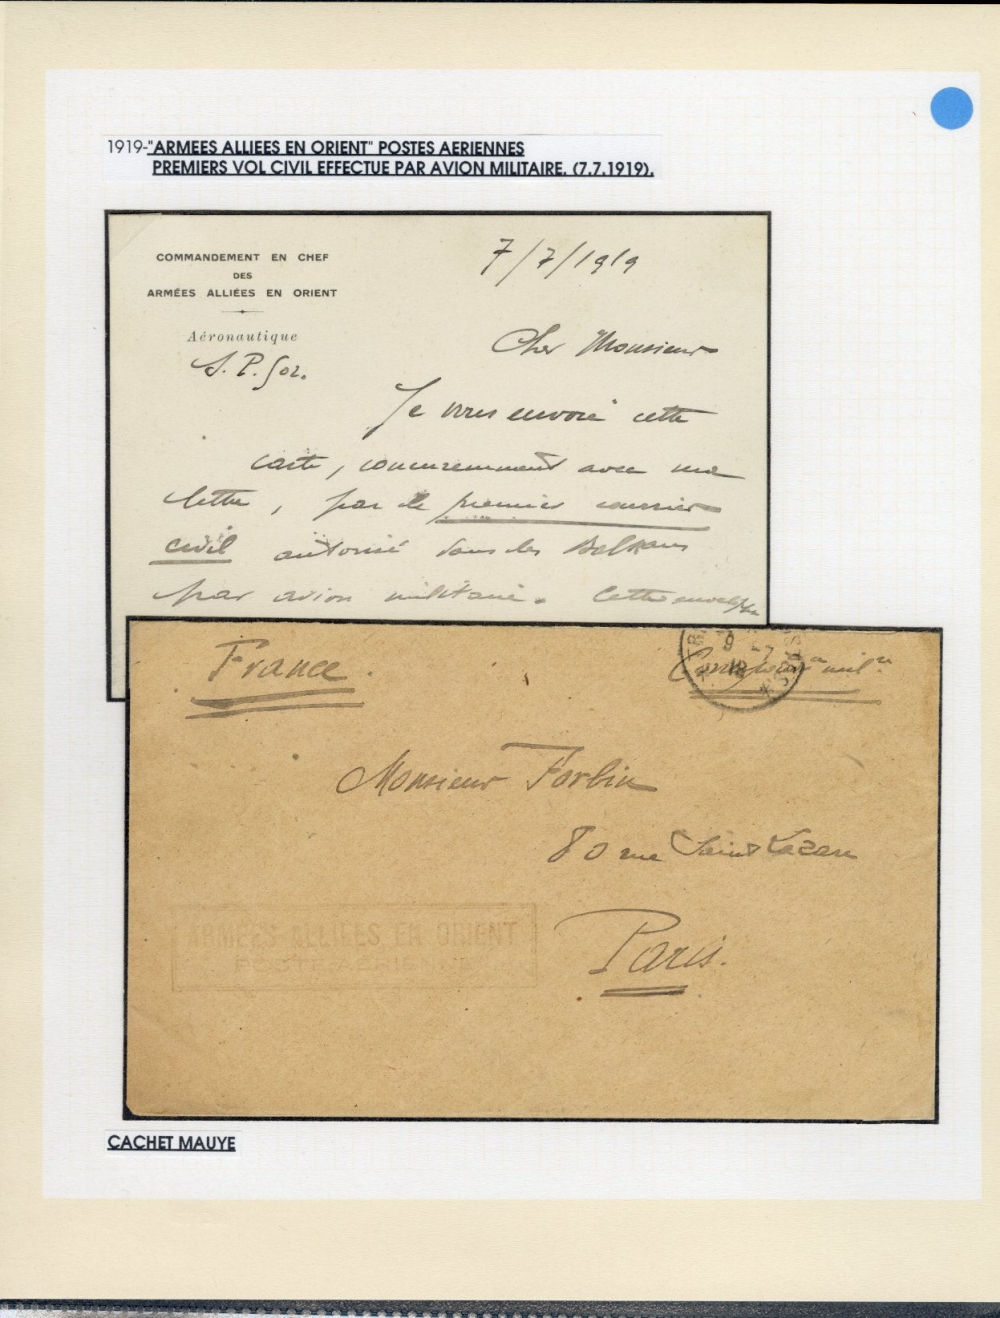 1919-"ARMEES ALLIEES EN ORIENT" POSTES AERIENNES
PREMIERS VOL CIVIL EFFECTUE PAR AVION MILITAIRE. (7.7.1919).
COMMANDEMENT EN CHEF
DES
ARMÉES ALLIÉES EN ORIENT
Aéronautique
S. P. 502.
7/7/1919
Cher Monsieur
Je vous envoie cette
carte, concurremment avec ma
lettre, par le premier courrier
civil autorisé dans les Balkans
par avion militaire. Cette enveloppe
France.
9 -7
19
Monsieur Forbin
80 rue Saint Lazare
Paris.
ARMÉES ALLIÉES EN ORIENT
POSTE AERIENNE
CACHET MAUYE